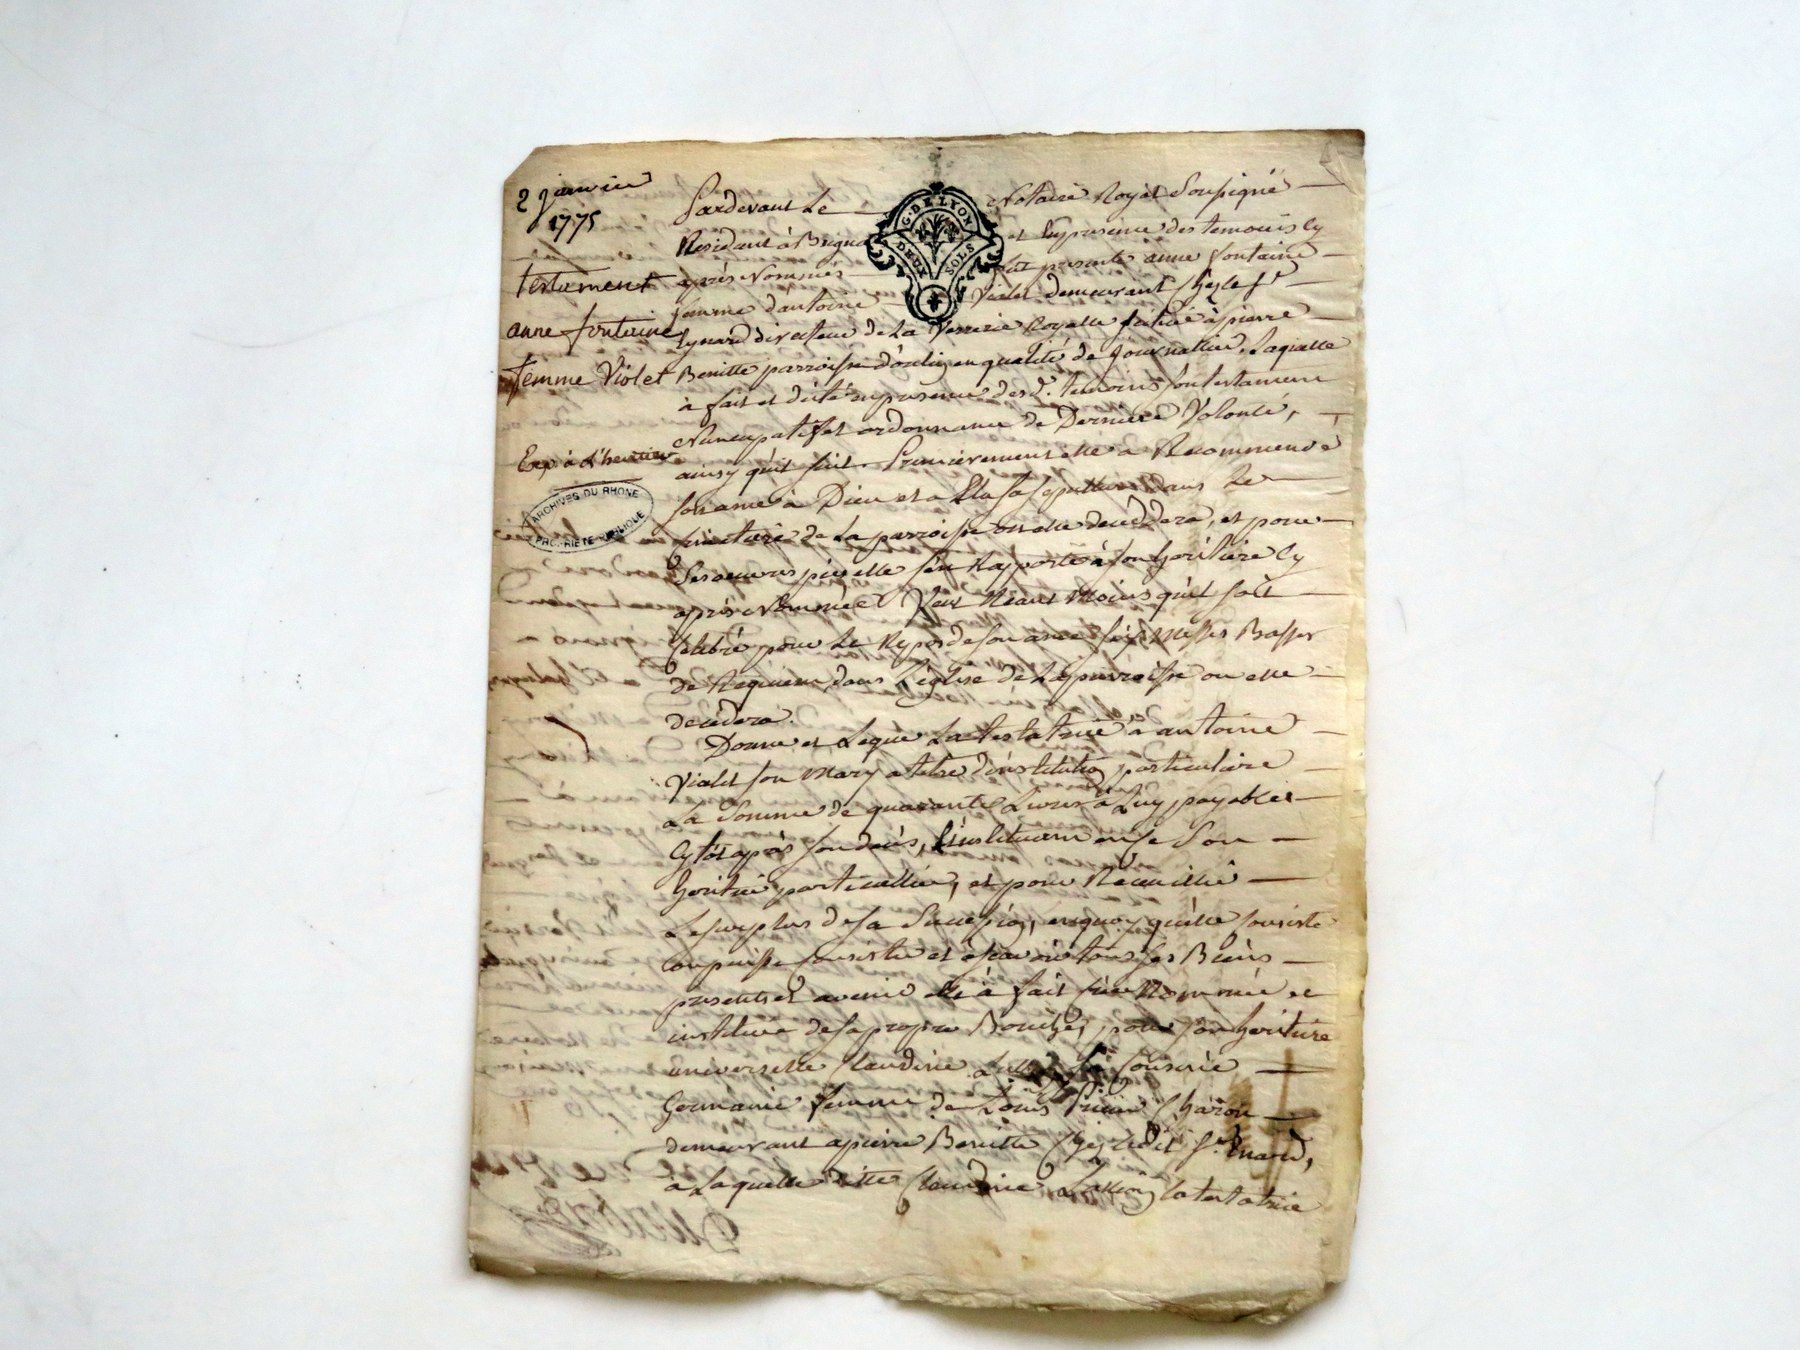 2 janvier
1775
testament
anne fontaine
femme Violet
Exp. à l'heritier
ARCHIVES DU RHONE
PROPRIETE PUBLIQUE
G. DE LYON
DEUX SOLS
Pardevant Le Notaire Royal Soussigné
Residant à Brignai et En presence des temoins Cy
après Nommés fut presente anne fontaine
femme d'antoine Violet demeurant Chez le sr.
directeur de La Verrerie Royalle située à pierre
Benitte parroisse d'oulin en qualité de journallier, Laquelle
à fait et dicté en presence desd. temoins son testament
Nuncupatif et ordonnance de Derniere Volonté,
ainsy qu'il suit. Premierement elle a Recommendé
son ame à Dieu et a Elu sa sepulture dans Le
Cimetiere de La parroisse ou elle decedera, et pour
Ses oeuvres pies elle s'en Rapporte à son heritiere Cy
après Nommée Veut Neant Moins qu'il soit
Celebré pour Le Repos de son ame six Messes Basses
de Requiem dans L'église de La parroisse ou elle
decedera.
Donne et Legue La testatrice à antoine
Violet son mary a titre d'institution particuliere
La Somme de quarante Livres à Luy payable
sytot après son decès, L'instituant en ce Son
heritier particullier, et pour Recueillir
Le surplus de sa Succession, en quoy qu'elle consiste
ou puisse Consister et à scavoir tous ses Biens
presents et avenir elle à fait Crée Nommée et
instituée de sa propre Bouche, pour son heritiere
universelle Claudine Sa Cousine
Germaine femme de Louis Charon
demeurant a pierre Benitte Chez ledit sr.
a Laquelle ditte Claudine la testatrice